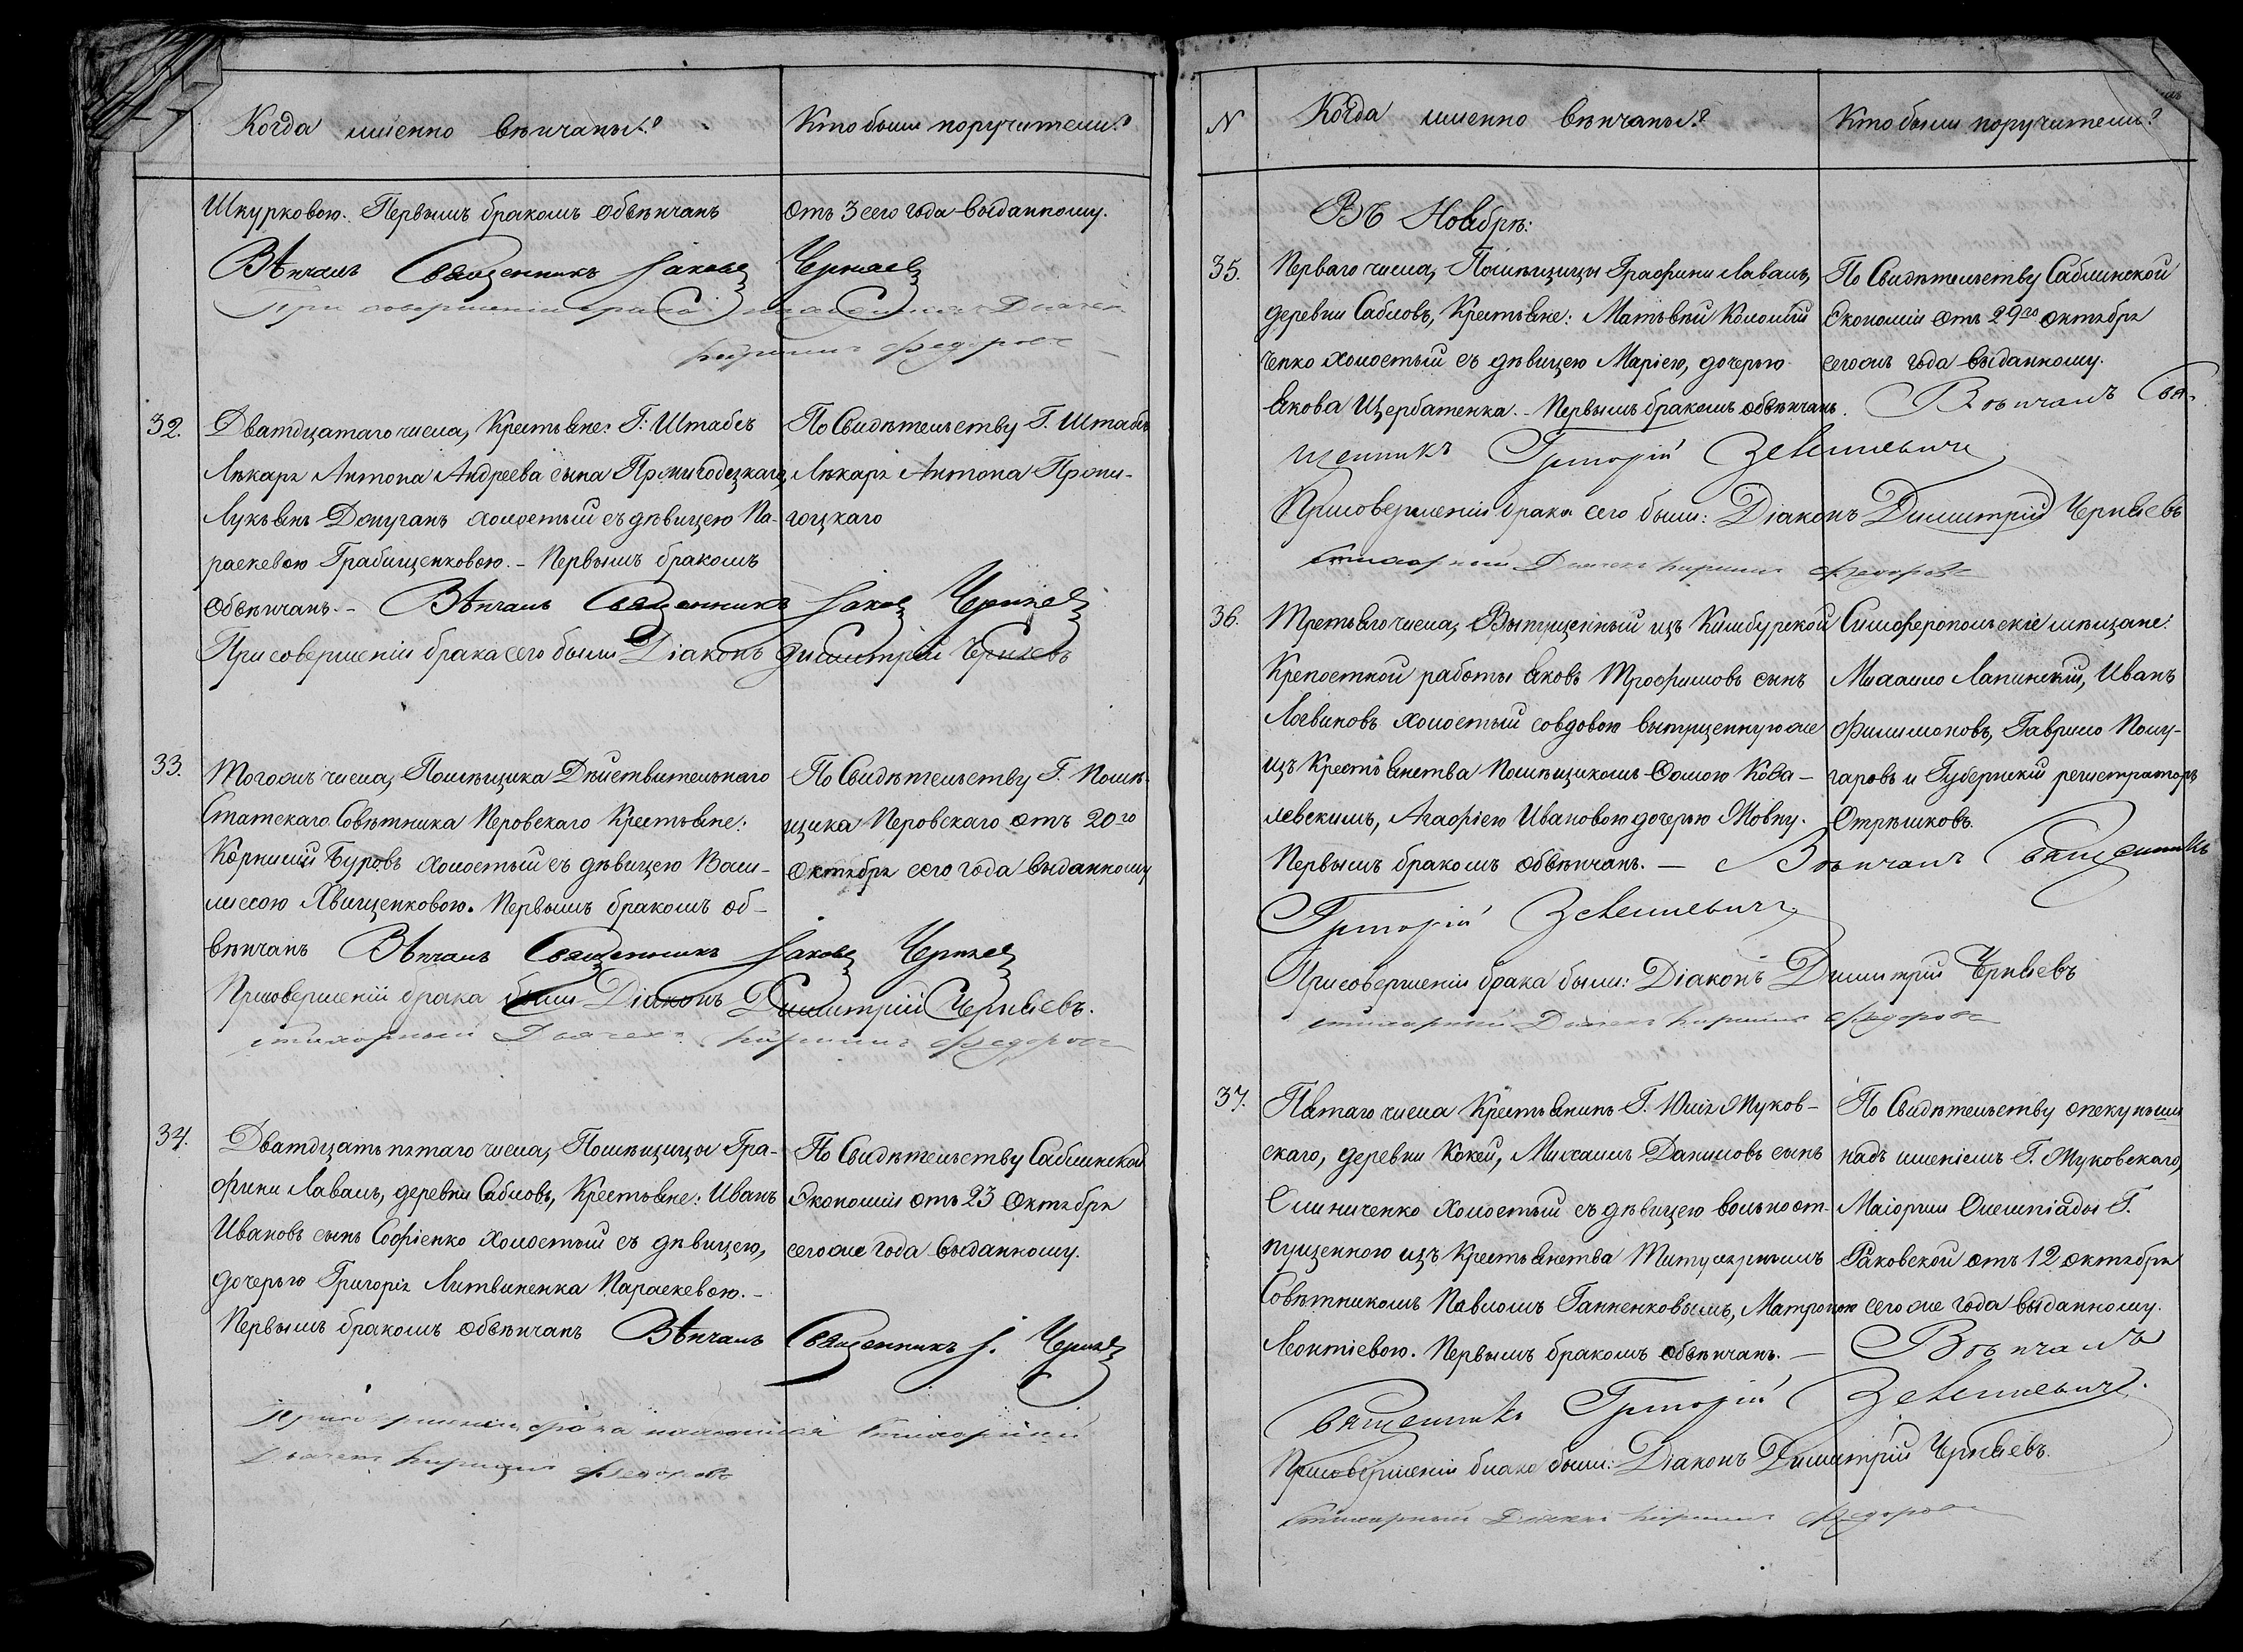 Когда именно вѣнчаны?
Кто были поручители?
Шкурковою. Первымъ бракомъ обвѣнчанъ
отъ 3 сего года выданному.
Вѣнчалъ Священникъ Іаковъ Черняев
При совершеніи брака находился Дьячек
Кирилъ Федоровъ
32.
Дватдцатаго числа, Крестьяне: Г: Штабсъ
Лѣкаря Антона Андреева сына
Лукьянъ холостый съ дѣвицею Па-
раскевою Грабищенковою. - Первымъ бракомъ
обвѣнчанъ. - Вѣнчалъ Священникъ Іаков Черняев
По Свидѣтельству Г. Штабъ
Лѣкаря Антона Проми-
гоцкаго
При совершеніи брака сего были Діаконъ Димитрій Черняевъ
33.
Тогожъ числа, Помѣщика Дѣйствительнаго
Статскаго Совѣтника Перовскаго Крестьяне:
Корнилій Буровъ холостый съ дѣвицею Васи-
лиссою Явищенковою. Первымъ бракомъ об-
вѣнчанъ Вѣнчалъ Священникъ Іаковъ Черняев
По Свидѣтельству Г. Помѣ-
щика Перовскаго отъ 20го
Октября сего года выданному
При совершеніи брака были Діаконъ Димитрій Черняевъ.
стихарный Дьячек Кирилъ Федоровъ
34.
Дватдцать пятаго числа, Помѣщицы Гра-
фини Лаваль, деревни Сабловъ, Крестьяне: Иванъ
Ивановъ сынъ Софіенко холостый съ дѣвицею,
дочерью Григорія Литвиненка Параскевою. -
Первымъ бракомъ обвѣнчанъ Вѣнчалъ Священникъ І. Черняев
По Свидѣтельству Саблинской
Экономіи отъ 23 Октября
сегоже года выданному.
При совершеніи брака находился Стихарный
Дьячек Кирилъ Федоровъ
N
Когда именно вѣнчаны?
Кто были поручители?
Въ Ноябрѣ:
35.
Перваго числа, Помѣщицы Графини Лаваль,
деревни Сабловъ, Крестьяне: Матьвѣй Коломій
ченко холостый съ дѣвицею Маріею, дочерью
Якова Щербатенка. - Первымъ бракомъ обвѣнчанъ. Вѣнчалъ Свя-
щенникъ Григорій
По Свидѣтельству Саблинской
Экономіи отъ 29го Октября
сегожъ года выданному.
При совершеніи брака сего были: Діаконъ Димитрій Черняевъ
Стихарный Дьячек Кирилъ Федоровъ
36.
Третьяго числа, Выпущенный изъ Кинбурской
Крепостной работы Яковъ Трофимовъ сынъ
Логвиновъ холостый со вдовою выпущенную же
изъ Крестьянства Помѣщикомъ Фомою Кова-
левскимъ, Агафіею Ивановою дочерью Жовну.
Первымъ бракомъ обвѣнчанъ. - Вѣнчалъ Священникъ
Григорій
Симферопольскіе мѣщане:
Михайло Лапинскій, Иванъ
Филимоновъ, Гаврило Полу-
гаровъ и Губернскій регистраторъ
Отрѣшковъ.
При совершеніи брака были: Діаконъ Димитрій Черняевъ
стихарный Дьячек Кирилъ Федоровъ
37.
Пятаго числа Крестьянинъ Г. Юлія Жуков-
скаго, деревни Кокей, Михаилъ Даниловъ сынъ
Слиниченко холостый съ дѣвицею вольноот-
пущенною изъ Крестьянства Титулярнымъ
Совѣтникомъ Павломъ Ганненковымъ, Матроною
Леонтіевою. Первымъ бракомъ обвѣнчанъ. - Вѣнчалъ
Священникъ Григорій
По Свидѣтельству опекунши
надъ имѣніемъ Г. Жуковскаго,
Маіорши Олемпіады Г.
Раковской отъ 12 октября
сегоже года выданному.
При совершеніи брака были: Діаконъ Димитрій Черняевъ.
Стихарный Дьячек Кирилъ Федоровъ